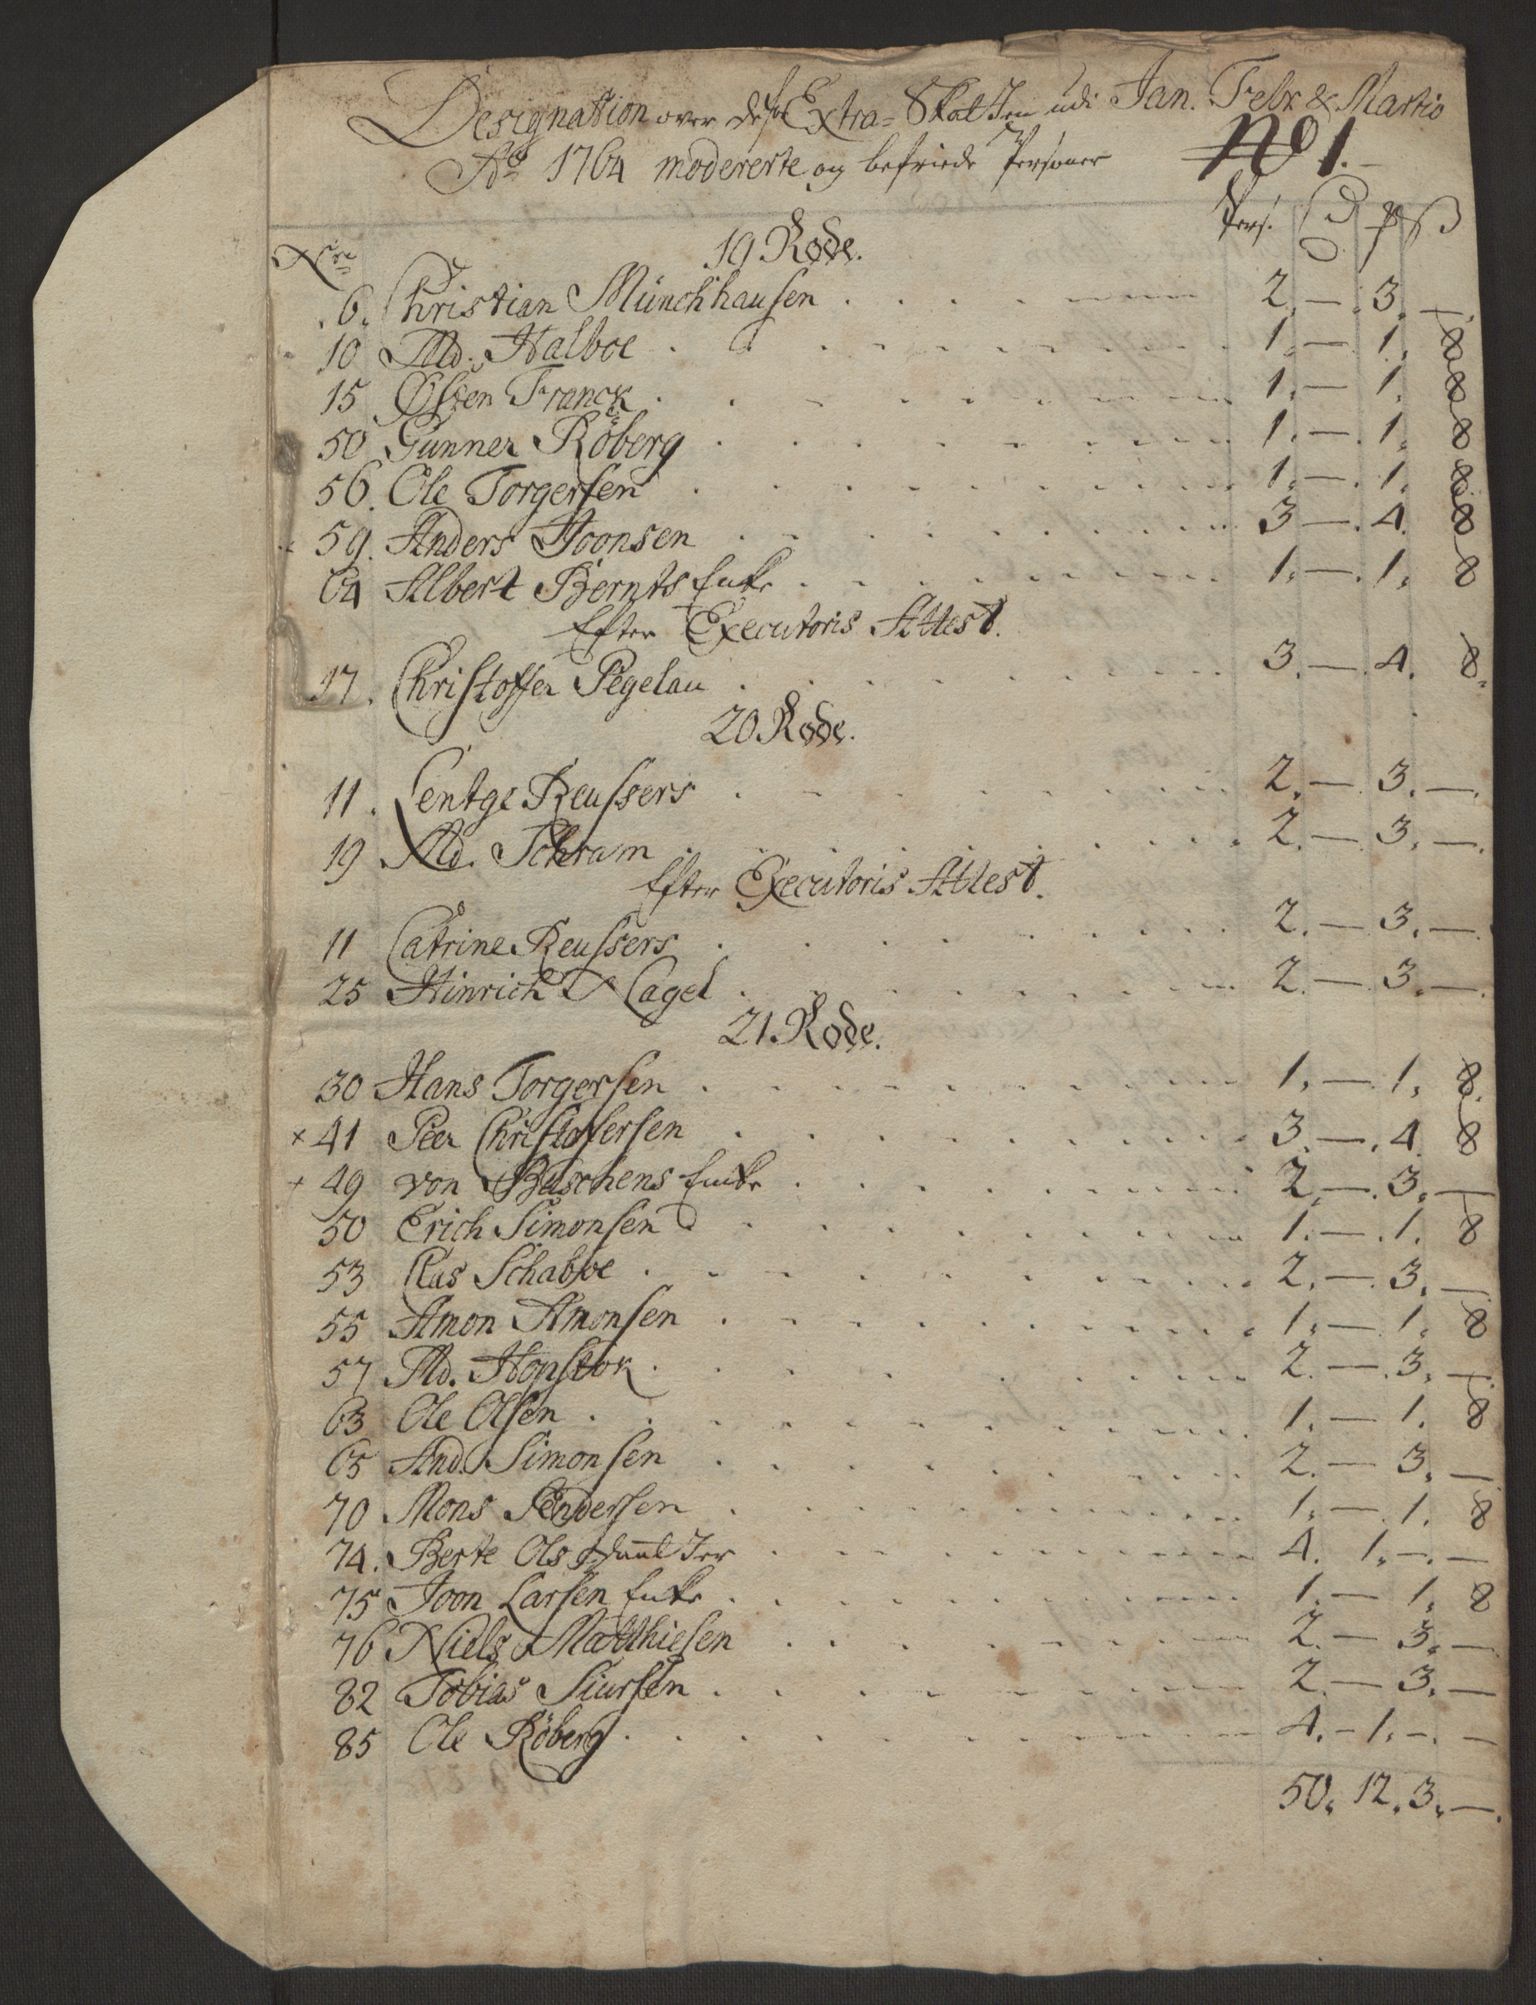 Designation over de for Extra-Skatten udi Jan. Febr & Martio
Ao 1764 modererte og befriede Personer No 1.
Pers. Rd mk ß
19 Rode.
Nro
6. Christian Münchhausen 2. — 3. —
10 Md. Halboe 1. — 1. 8
15 Østen Franck 1. — 1. 8
50 Gunner Röberg 1. — 1. 8
56. Ole Torgersen 1. — 1. 8
59. Anders Joonsen 3 — 4. 8
64 Albert Bernts Enke 1. — 1. 8
Efter Executoris Attest.
17. Christoffer Pegelau 3. — 4. 8.
20 Rode.
11. Lentge Reussers 2. — 3. —
19 Md. Schram 2. — 3. —
Efter Executoris Attest.
11 Catrine Reussers 2. — 3. —
25 Hinrich Nagel 2. — 3. —
21. Rode.
30 Hans Torgersen 1. — 1. 8.
x 41 Peer Christofersen 3. — 4. 8
+ 49 von Büschens Enke 2. — 3. —
50 Erich Simonsen 1. — 1. 8
53 Clas Schaboe 2. — 3. —
55 Amon Amonsen 1. — 1. 8
57 Md. Hopstok 2. — 3. —
63 Ole Olsen 1. — 1. 8
65 And. Simonsen 2. — 3. —
70 Mons Pedersen 1. — 1. 8
74. Berte Ols Daatter 4. 1. — —
75 Joon Larsen Enke 1. — 1. 8
76 Niels Matthiesen 2. — 3. —
82 Tobias Siursen 2. — 3. —
85 Ole Röberg 4. — 1. — —
50. 12. 3. —